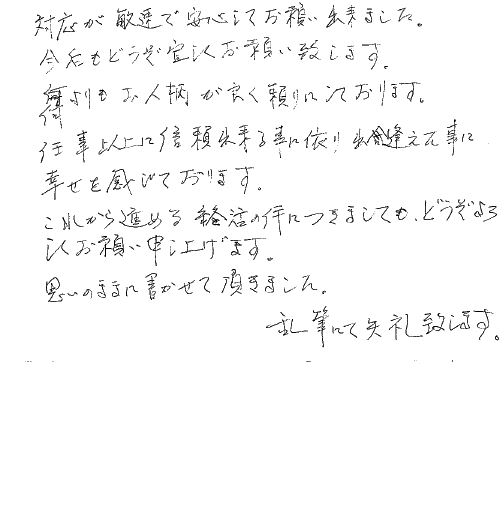 対応が敏速で安心してお願い出来ました。
今后もどうぞ宜しくお願い致します。
何よりもお人柄が良く頼りにしております。
仕事以上に信頼出来る事に依り出逢えた事に
幸せを感じております。
これから進める終活の件につきましても、どうぞよろ
しくお願い申し上げます。
思いのままに書かせて頂きました。
乱筆にて失礼致します。